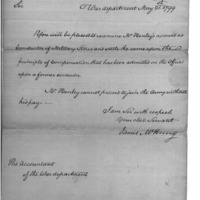 Sir War department May 1799
You will be pleased to examine Mr Henley's account as
Conductor of Military Stores and settle the same upon the
principle of Compensation that has been admitted on the Officer
upon a former occasion
Mr Henley cannot proceed to join the Army without
his pay.
I am Sir with respect
Your obed Servant
James McHenry
The Accountant
of the War department